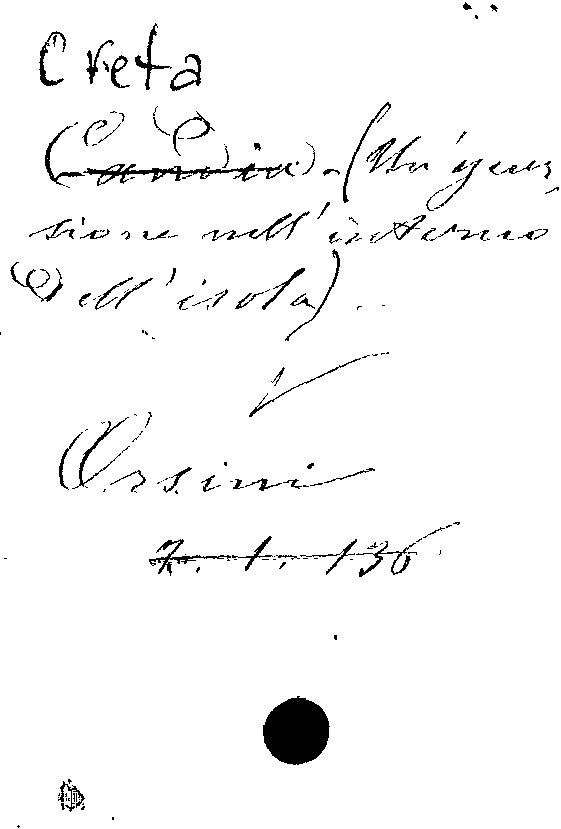 Creta
Candia. (Un'
sione nell'interno
dell'isola)..
Orsini
7. 1. 136